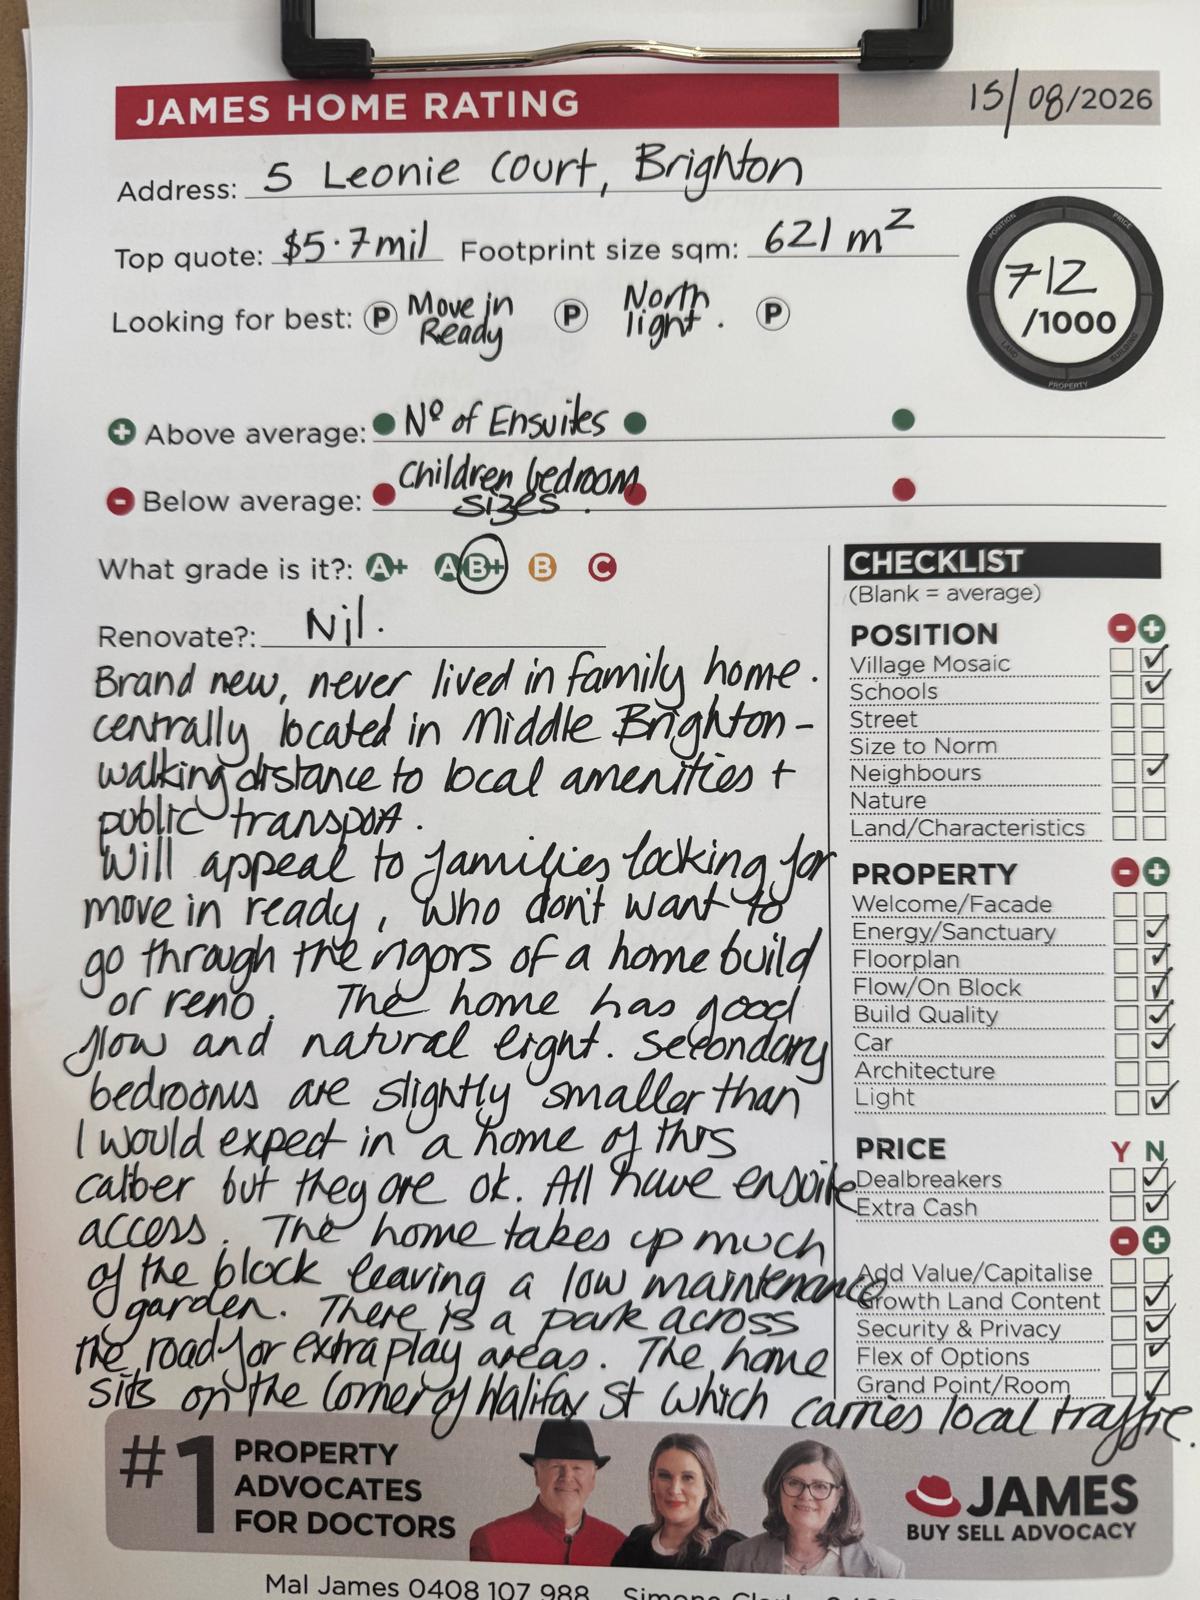 JAMES HOME RATING
15/08/2026
Address: 5 Leonie Court, Brighton
Top quote: $5.7mil Footprint size sqm: 621 m²
POSITION PRICE BUILDING PROPERTY LAND
712
/1000
Looking for best: P Move in Ready P North light. P
+ Above average: Nº of Ensuites
- Below average: Children bedroom sizes.
What grade is it?: A+ A B+ B C
Renovate?: Nil.
Brand new, never lived in family home.
centrally located in Middle Brighton -
walking distance to local amenities +
public transport.
Will appeal to families looking for
move in ready, who don't want to
go through the rigors of a home build
or reno. The home has good
flow and natural light. Secondary
bedrooms are slightly smaller than
I would expect in a home of this
caliber but they are ok. All have ensuite
access. The home takes up much
of the block leaving a low maintenance
garden. There is a park across
the road for extra play areas. The home
sits on the corner of Halifax St which carries local traffic.
CHECKLIST
(Blank = average)
POSITION - +
Village Mosaic
Schools
Street
Size to Norm
Neighbours
Nature
Land/Characteristics
PROPERTY - +
Welcome/Facade
Energy/Sanctuary
Floorplan
Flow/On Block
Build Quality
Car
Architecture
Light
PRICE Y N
Dealbreakers
Extra Cash
- +
Add Value/Capitalise
Growth Land Content
Security & Privacy
Flex of Options
Grand Point/Room
#1 PROPERTY
ADVOCATES
FOR DOCTORS
JAMES
BUY SELL ADVOCACY
Mal James 0408 107 988 Simone